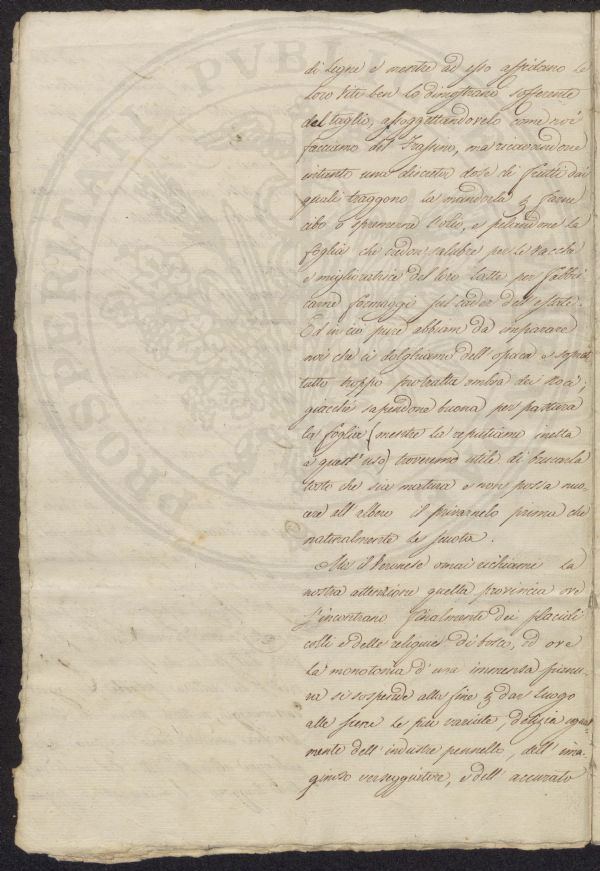 di legne e mentre ad esso affidano le
loro vite ben lo dimostrano sofferente
del taglio, assoggettandovelo come noi
facciamo del Frassino, ma ricavandone
intanto una discreta dose di frutti dai
quali traggono la mandorla p farne
cibo o spremerne l'olio, e pelandone la
foglia che credon salubre per le vacche
e miglioratrice del loro latte per fabbri
carne formaggi sul cader dell'estate.
Ed in ciò pure abbiam da imparare
noi che ci dolghiamo dell'opaca e soprat
tutto troppo protratta ombra dei noci;
giacchè sapendone buona per pastura
la foglia (mentre la reputiamo inetta
a quest'uso) troveremo utile di brucarla
tosto che sia matura e non possa nuo
cere all'albero il privarnelo prima che
naturalmente le scuota.
Ma il Veronese omai richiama la
nostra attenzione quella provincia ove
s'incontrano finalmente dei placidi
colli e delle reliquie di bosco, ed ove
la monotonia d'una immensa pianu-
ra si sospende alla fine p dar luogo
alle scene le più variate, delizia egual
mente dell'industre pennello, dell'ima-
ginoso verseggiatore, e dell'accurato
PROSPERITATI PVBLI